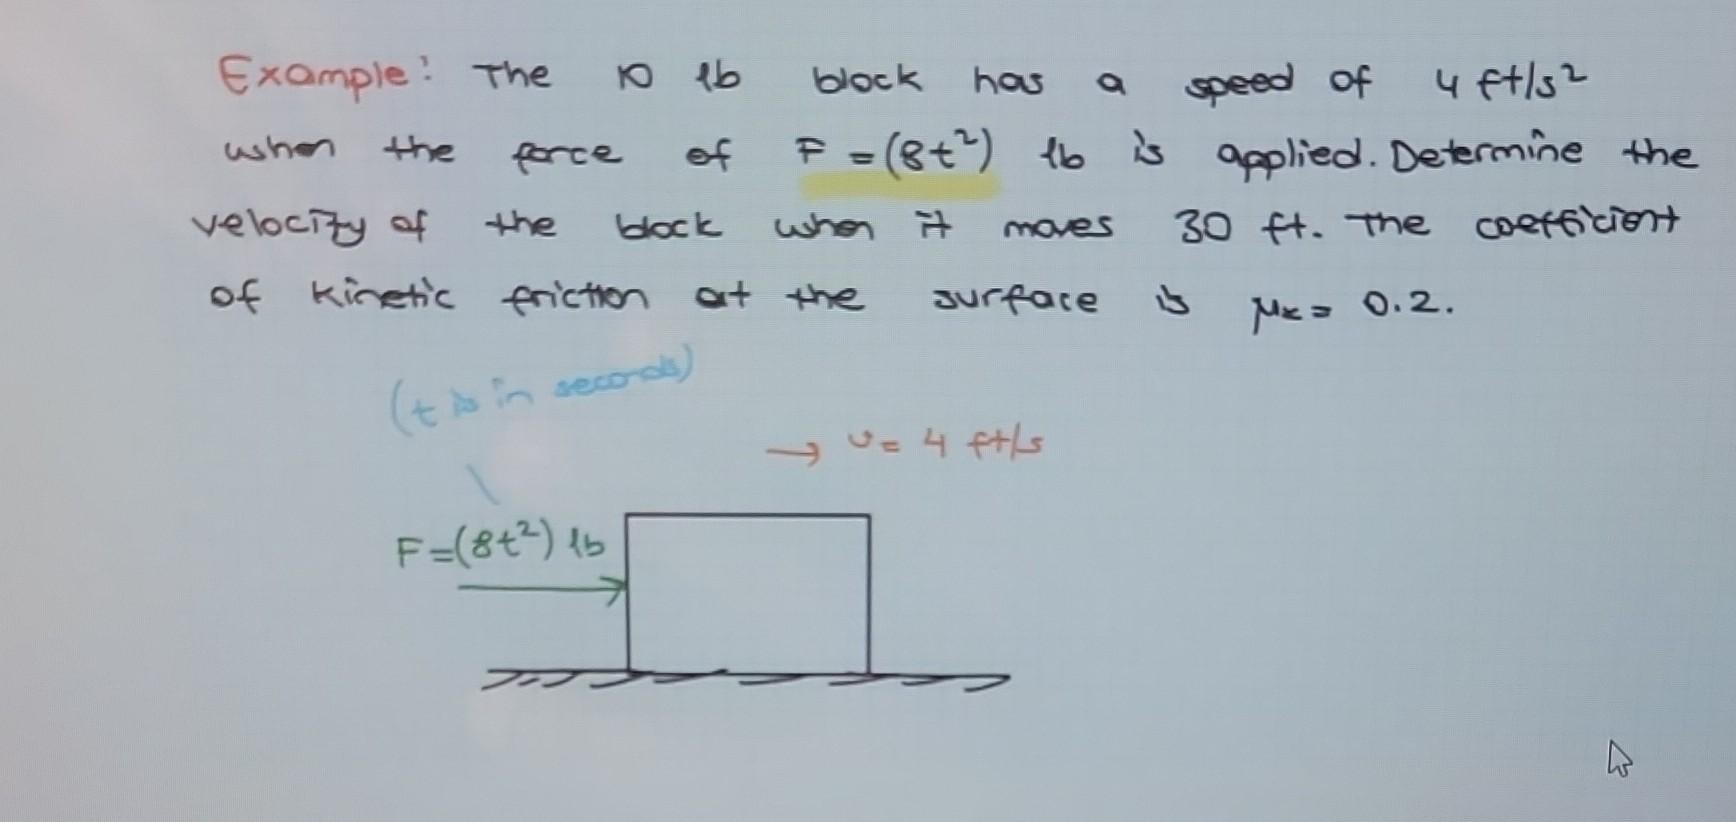 Example: The 10 lb block has a speed of 4 ft/s²
when the force of F = (8t²) lb is applied. Determine the
velocity of the block when it moves 30 ft. The coefficient
of kinetic friction at the surface is μk = 0.2.
(t is in seconds)
→ v = 4 ft/s
F=(8t²) lb